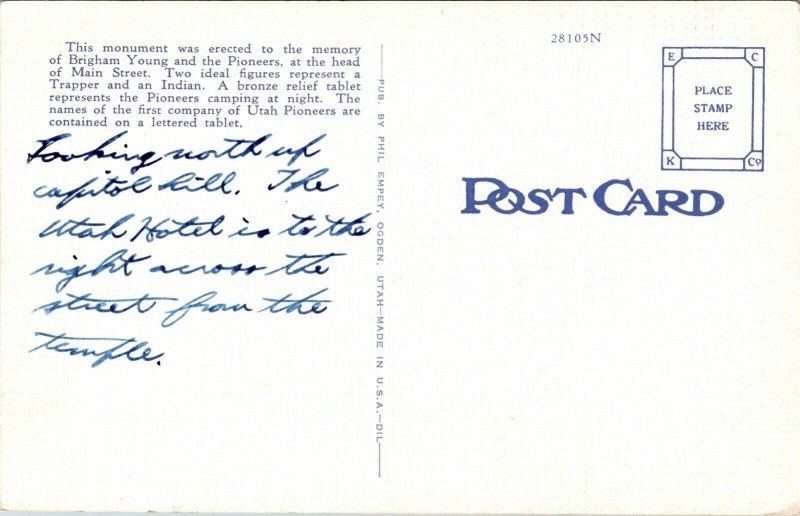 This monument was erected to the memory
of Brigham Young and the Pioneers, at the head
of Main Street. Two ideal figures represent a
Trapper and an Indian. A bronze relief tablet
represents the Pioneers camping at night. The
names of the first company of Utah Pioneers are
contained on a lettered tablet.
Looking north up
capitol hill. The
Utah Hotel is to the
right across the
street from the
temple.
PUB. BY PHIL EMPEY, OGDEN, UTAH—MADE IN U.S.A.—DIL
28105N
E C
PLACE
STAMP
HERE
K Co
POST CARD